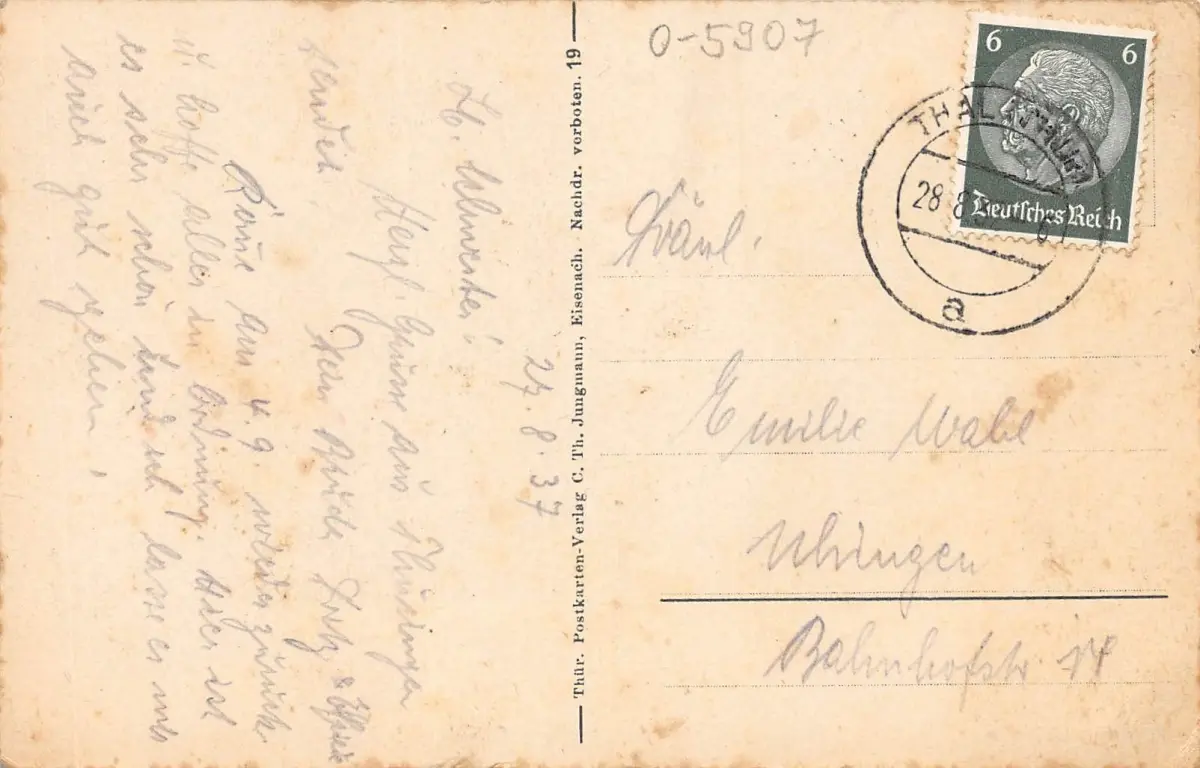 27. 8. 37
L. Schwester!
Herzl. Grüsse aus Thüringen
sendet Dein Bruder Fritz
Komme am 4. 9. wieder zurück
u. hoffe alles in Ordnung. Hier ist
es sehr schön und ich lasse es mir
auch gut gehen.
Thür. Postkarten-Verlag C. Th. Jungmann, Eisenach. Nachdr. verboten. 19
0-5907
6 6
Deutsches Reich
THAL (THÜR)
28 8
a
Fräul.
Emilie Wahl
Uhingen
Bahnhofstr 14